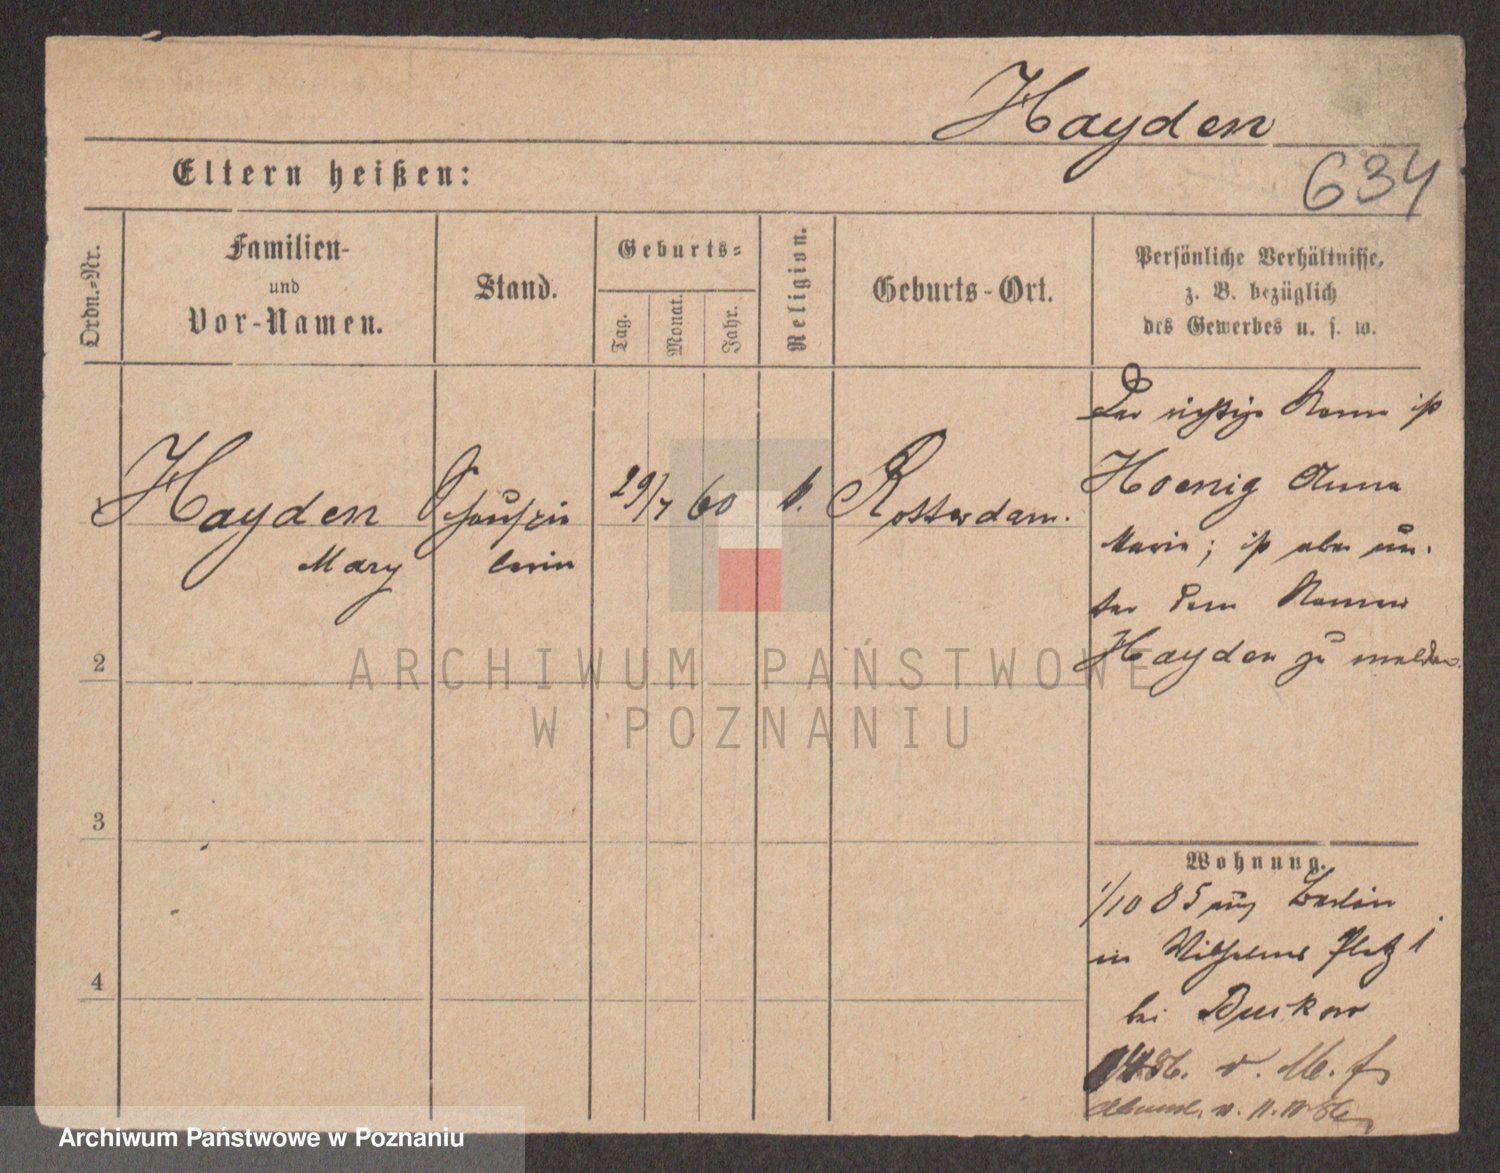 Hayden
634
Eltern heißen:
Ordn.-Nr.
Familien-
und
Vor-Namen.
Stand.
Geburts-
Tag.
Monat.
Jahr.
Religion.
Geburts-Ort.
Persönliche Verhältnisse,
z. B. bezüglich
des Gewerbes u. s. w.
1 Hayden Schauspie 29/7 60 k. Rotterdam.
Mary lerin
Der richtige Name ist
Hoenig Anna
Marie; ist aber un-
ter dem Namen
Hayden zu melden.
2
3
4
Wohnung.
1/10 85 aus Berlin
in Wilhelms Platz 1
bei
86. v.
ARCHIWUM PAŃSTWOWE
W POZNANIU
Archiwum Państwowe w Poznaniu